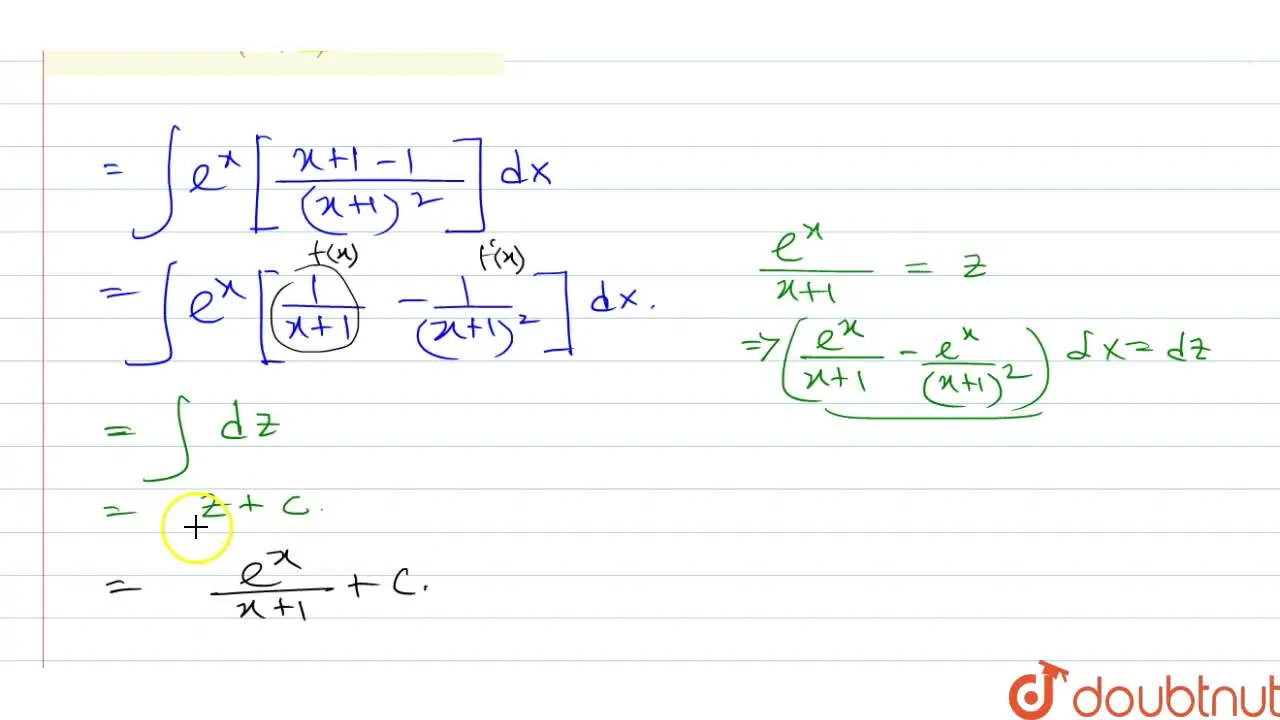 = ∫ e^x [ (x+1-1)/(x+1)^2 ] dx
f(x) f'(x)
= ∫ e^x [ 1/(x+1) - 1/(x+1)^2 ] dx.
= ∫ dz
= z + c.
= e^x/(x+1) + c.
e^x/(x+1) = z
=> ( e^x/(x+1) - e^x/(x+1)^2 ) dx = dz
doubtnut